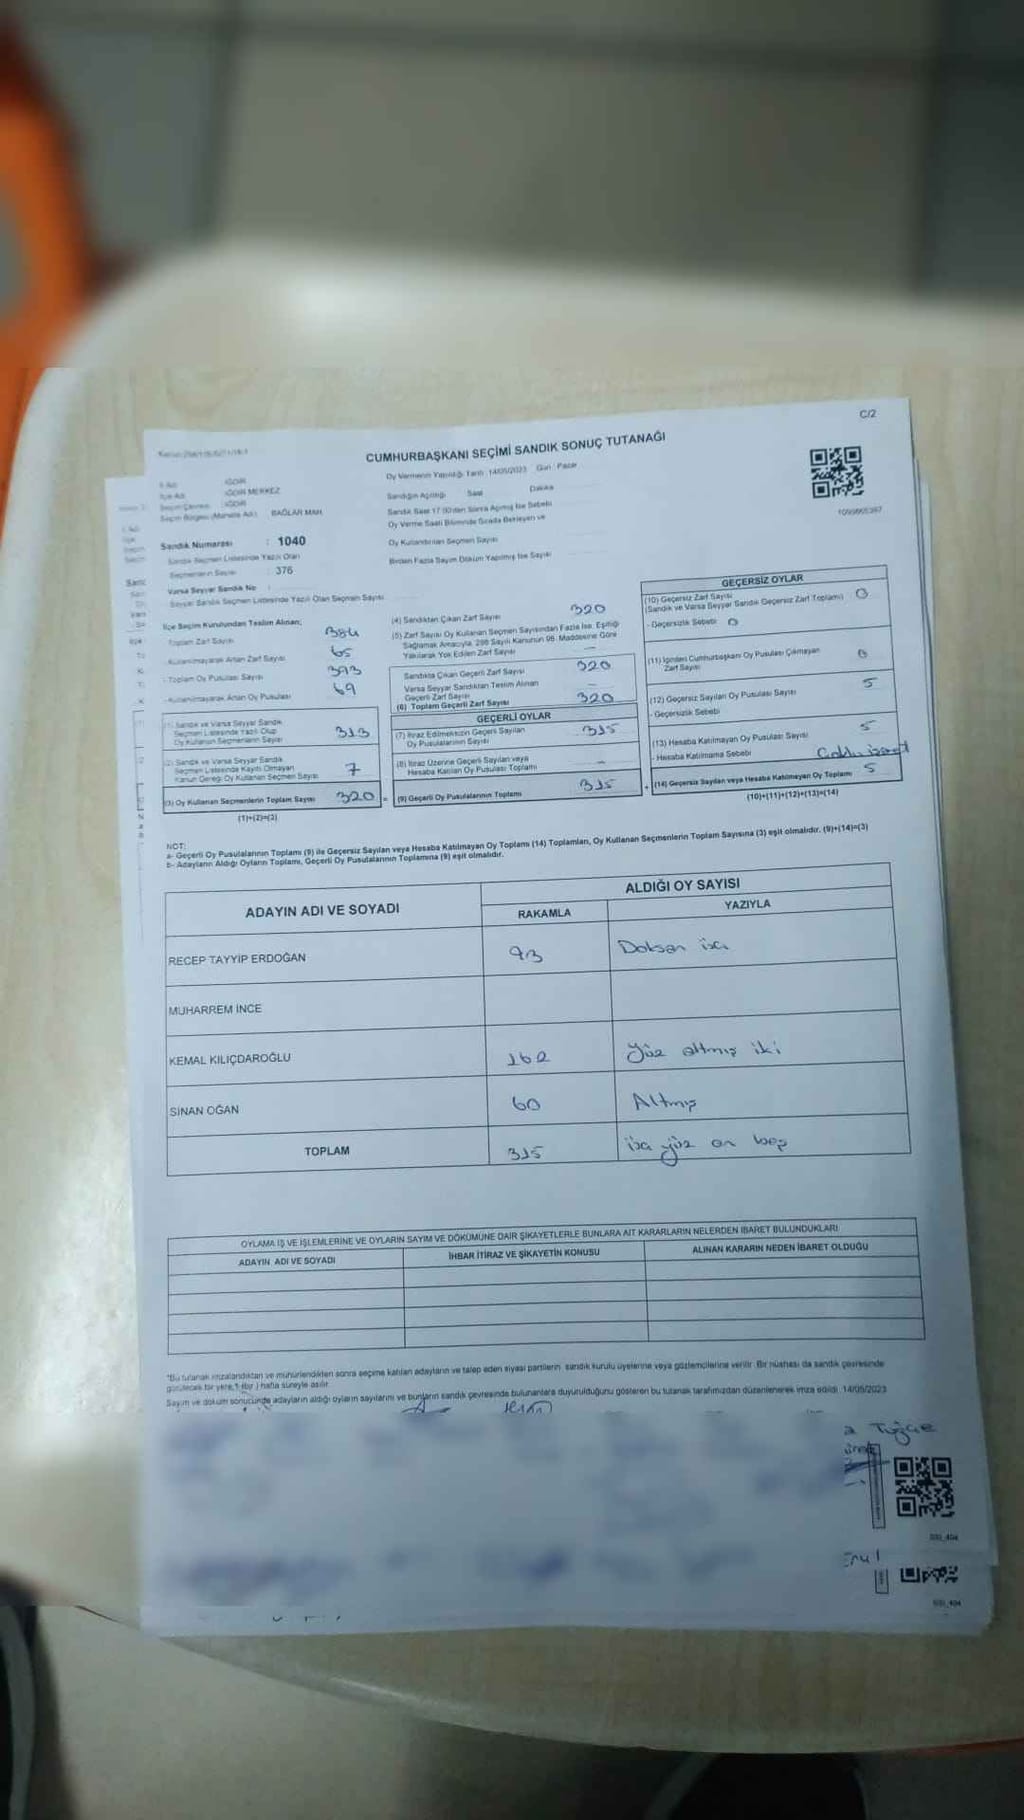 C/2
CUMHURBAŞKANI SEÇİMİ SANDIK SONUÇ TUTANAĞI
İli Adı : IĞDIR
İlçe Adı : IĞDIR MERKEZ
Seçim Çevresi : IĞDIR
Seçim Bölgesi (Mahalle Adı) : BAĞLAR MAH.
Sandık Numarası : 1040
Sandık Seçmen Listesinde Yazılı Olan
Seçmenlerin Sayısı : 376
Varsa Seyyar Sandık No :
Seyyar Sandık Seçmen Listesinde Yazılı Olan Seçmen Sayısı
Oy Vermenin Yapıldığı Tarih : 14/05/2023 Gün : Pazar
Sandığın Açıldığı Saat Dakika
Sandık Saat 17.00'den Sonra Açılmış İse Sebebi
Oy Verme Saati Bitiminde Sırada Bekleyen ve
Oy Kullandırılan Seçmen Sayısı
Birden Fazla Sayım Döküm Yapılmış İse Sayısı
İlçe Seçim Kurulundan Teslim Alınan;
- Toplam Zarf Sayısı 384
- Kullanılmayarak Artan Zarf Sayısı 65
- Toplam Oy Pusulası Sayısı 393
- Kullanılmayarak Artan Oy Pusulası 69
(1) Sandık ve Varsa Seyyar Sandık
Seçmen Listesinde Yazılı Olup
Oy Kullanan Seçmenlerin Sayısı 313
(2) Sandık ve Varsa Seyyar Sandık
Seçmen Listesinde Kayıtlı Olmayan
Kanun Gereği Oy Kullanan Seçmen Sayısı 7
(3) Oy Kullanan Seçmenlerin Toplam Sayısı 320 =
(1)+(2)=(3)
(4) Sandıktan Çıkan Zarf Sayısı 320
(5) Zarf Sayısı Oy Kullanan Seçmen Sayısından Fazla İse, Eşitliği
Sağlamak Amacıyla, 298 Sayılı Kanunun 98. Maddesine Göre
Yakılarak Yok Edilen Zarf Sayısı —
Sandıkta Çıkan Geçerli Zarf Sayısı 320
Varsa Seyyar Sandıktan Teslim Alınan
Geçerli Zarf Sayısı —
(6) Toplam Geçerli Zarf Sayısı 320
GEÇERLİ OYLAR
(7) İtiraz Edilmeksizin Geçerli Sayılan
Oy Pusulalarının Sayısı 315
(8) İtiraz Üzerine Geçerli Sayılan veya
Hesaba Katılan Oy Pusulası Toplamı —
(9) Geçerli Oy Pusulalarının Toplamı 315 +
GEÇERSİZ OYLAR
(10) Geçersiz Zarf Sayısı 0
(Sandık ve Varsa Seyyar Sandık Geçersiz Zarf Toplamı)
- Geçersizlik Sebebi 0
(11) İçinden Cumhurbaşkanı Oy Pusulası Çıkmayan
Zarf Sayısı 0
(12) Geçersiz Sayılan Oy Pusulası Sayısı 5
- Geçersizlik Sebebi
(13) Hesaba Katılmayan Oy Pusulası Sayısı 5
- Hesaba Katılmama Sebebi
(14) Geçersiz Sayılan veya Hesaba Katılmayan Oy Toplamı 5
(10)+(11)+(12)+(13)=(14)
1099665397
NOT:
a- Geçerli Oy Pusulalarının Toplamı (9) ile Geçersiz Sayılan veya Hesaba Katılmayan Oy Toplamı (14) Toplamları, Oy Kullanan Seçmenlerin Toplam Sayısına (3) eşit olmalıdır. (9)+(14)=(3)
b- Adayların Aldığı Oyların Toplamı, Geçerli Oy Pusulalarının Toplamına (9) eşit olmalıdır.
ADAYIN ADI VE SOYADI ALDIĞI OY SAYISI
RAKAMLA YAZIYLA
RECEP TAYYİP ERDOĞAN 93 Doksan
MUHARREM İNCE
KEMAL KILIÇDAROĞLU 162 Yüz altmış iki
SİNAN OĞAN 60 Altmış
TOPLAM 315 yüz on beş
OYLAMA İŞ VE İŞLEMLERİNE VE OYLARIN SAYIM VE DÖKÜMÜNE DAİR ŞİKAYETLERLE BUNLARA AİT KARARLARIN NELERDEN İBARET BULUNDUKLARI
ADAYIN ADI VE SOYADI İHBAR İTİRAZ VE ŞİKAYETİN KONUSU ALINAN KARARIN NEDEN İBARET OLDUĞU
"Bu tutanak imzalandıktan ve mühürlendikten sonra seçime katılan adayların ve talep eden siyasi partilerin sandık kurulu üyelerine veya gözlemcilerine verilir. Bir nüshası da sandık çevresinde
görülecek bir yere 1 (bir) hafta süreyle asılır.
Sayım ve döküm sonucunda adayların aldığı oyların sayılarını ve bunların sandık çevresinde bulunanlara duyurulduğunu gösteren bu tutanak tarafımızdan düzenlenerek imza edildi. 14/05/2023
Tuğçe